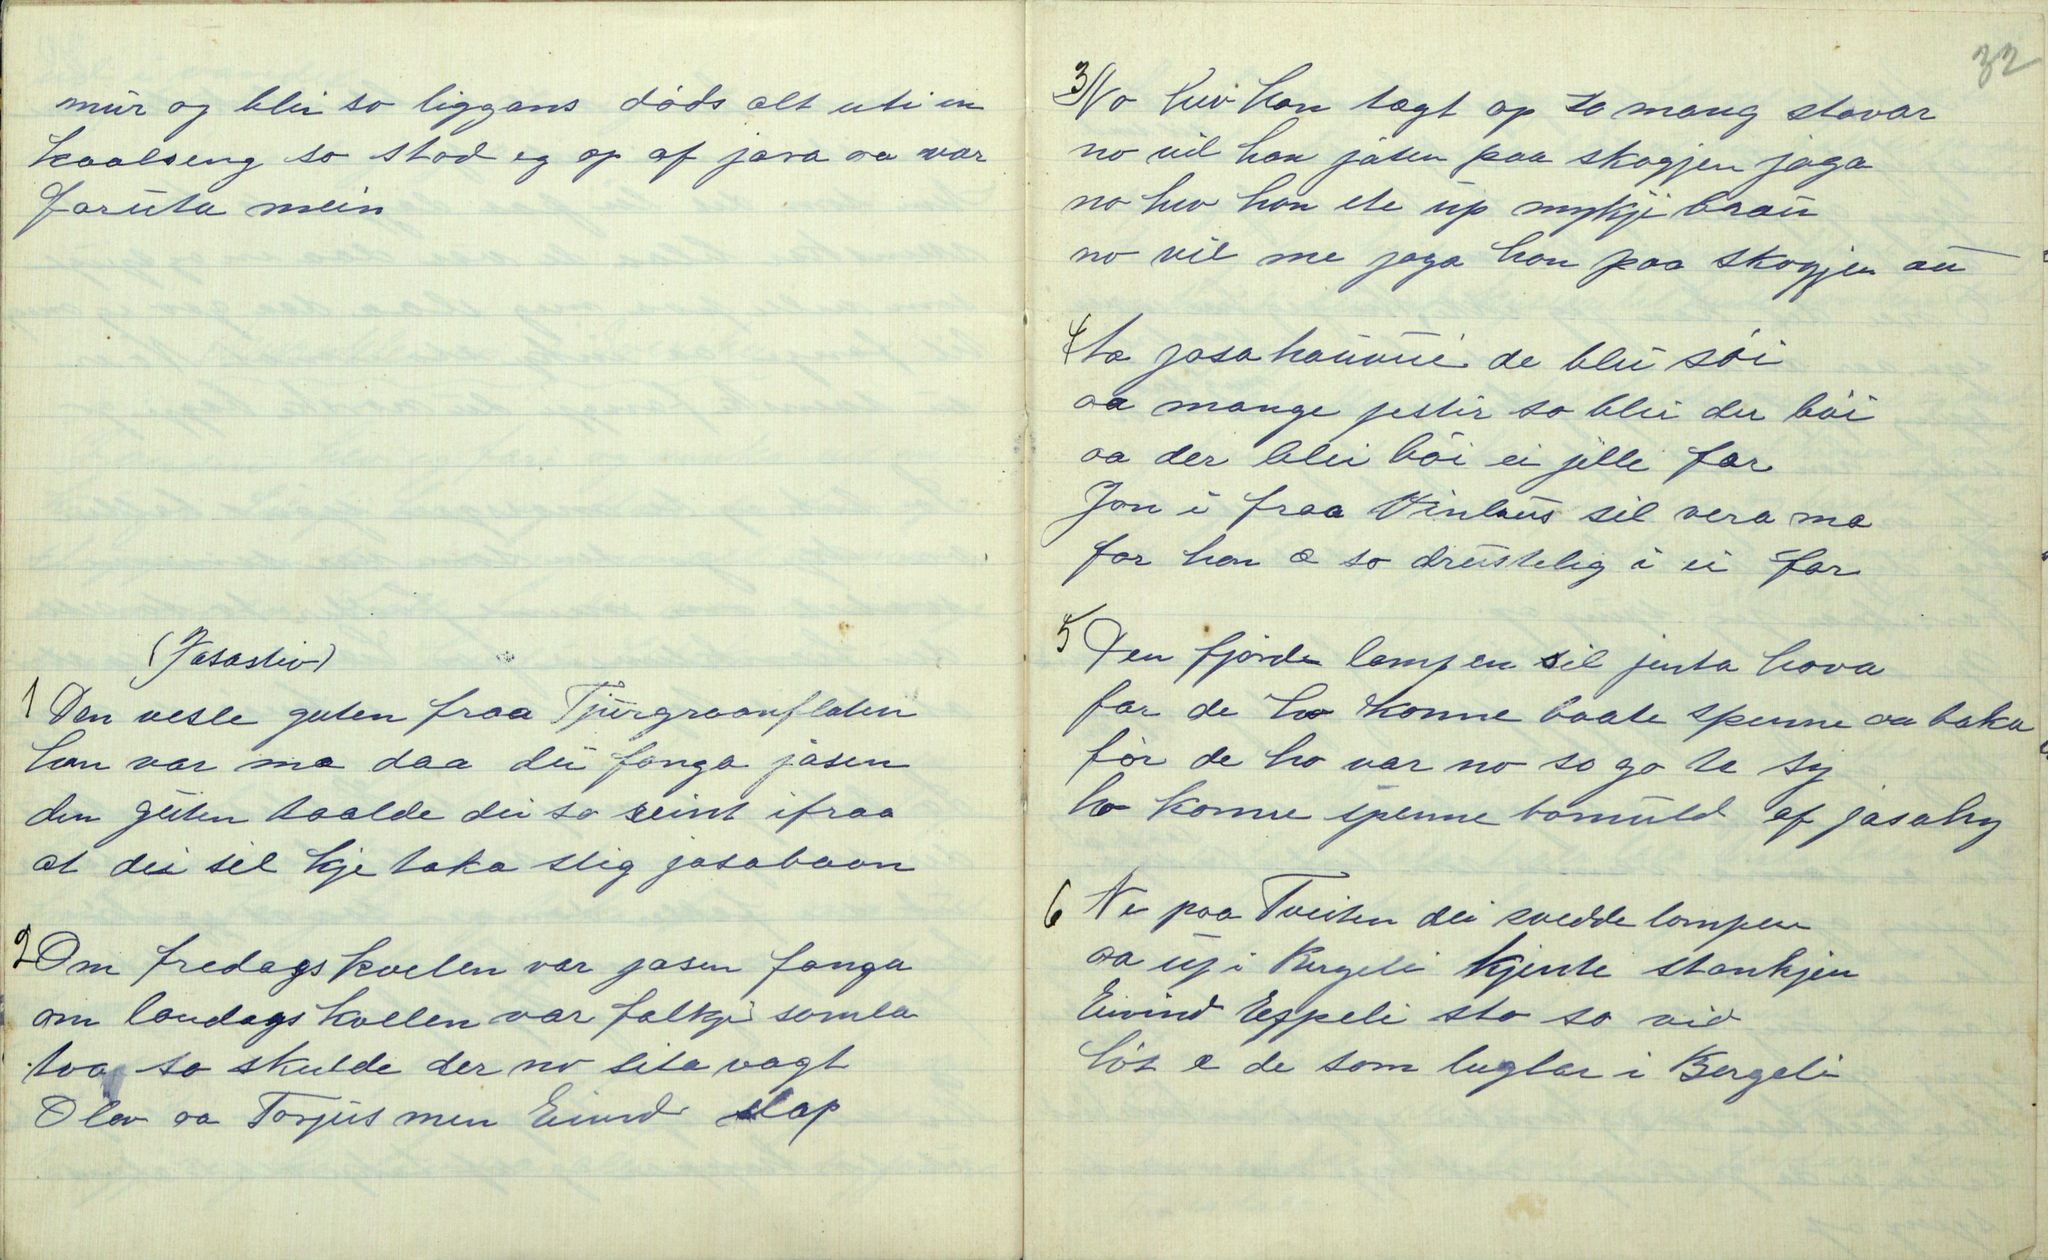 mur og blei so liggans døds alt uti en
kaalseng so stod eg op af jara aa var
foruta mein
(Jasastev)
1 Den vesle guten fraa Tjurgraanflaten
han var mæ daa dei fanga jasen
den guten taalde dei so seint ifraa
at dei sil kje taka slig jasabaan
2 Om fredagskvelen var jasen fanga
om laudagskvellen var falkji samla
tvo so skulde der no sita vagt
Olav aa Torjus men Eivind slap
32
3 No hev han tagt op so mang stavar
no vil han jasen paa skogjen jaga
no hev han ete up mykji brau
no vil me jaga han paa skogjen au
4 Ta jasahauvui de blei søi
aa mange jestir so blei der bøi
aa der blei bøi ei jille far
Jon i fraa Vinlaus sil vera mæ
for han æ so drustelig i ei far
5 Den fjorde lampen sil jenta hava
for de ho konne baate spenne aa baka
før de ho var no so go te sy
ho konne spenne bomuld af jasahy
6 Ne paa Tveiten dei svedde lampen
aa up i Bergeli kjente stankjen
Eivind Espeli sto so vid
høt e de som lugtar i Bergeli